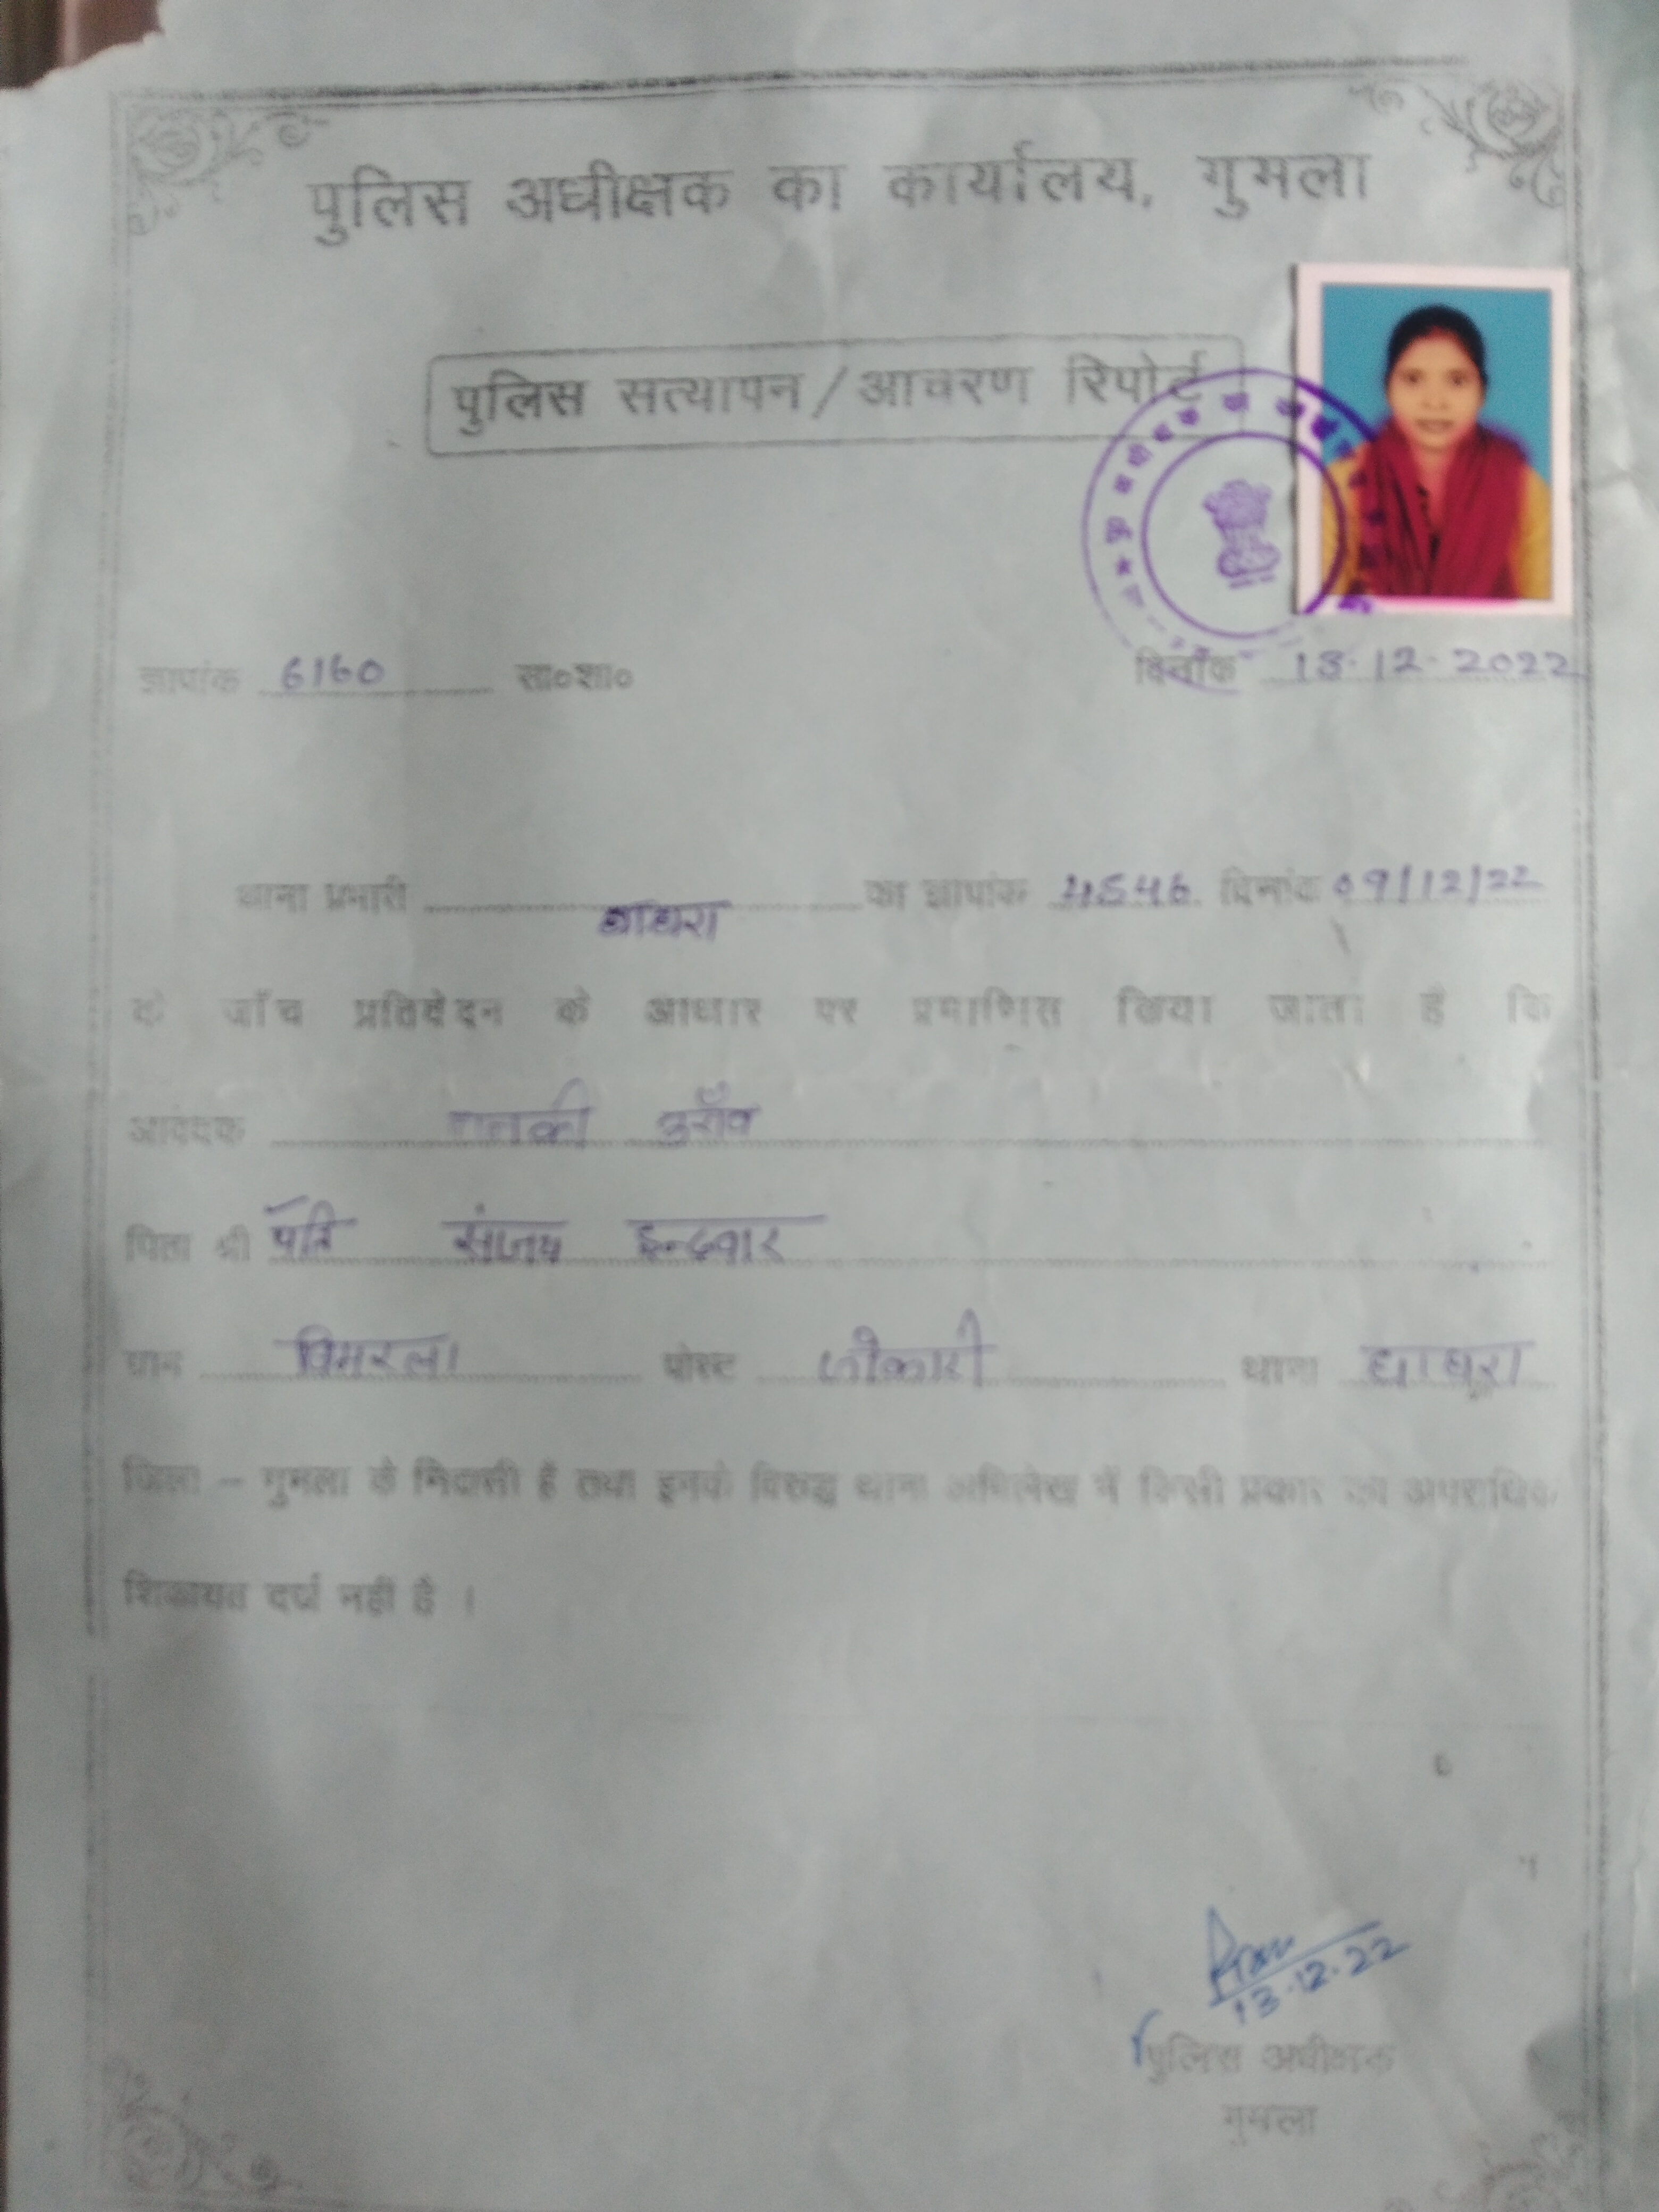 पुलिस अधीक्षक का कार्यालय, गुमला
पुलिस सत्यापन/आचरण रिपोर्ट
ज्ञापांक 6160 सा०शा० दिनाँक 13.12.2022
थाना प्रभारी घाघरा का ज्ञापांक 4546 दिनांक 09/12/22
के जाँच प्रतिवेदन के आधार पर प्रमाणित किया जाता है कि
आवेदक उराँव
पिता श्री पति संजय इन्दवार
ग्राम पोस्ट थाना घाघरा
जिला - गुमला के निवासी है तथा इनके विरुद्ध थाना अभिलेख में किसी प्रकार का अपराधिक
शिकायत दर्ज नहीं है ।
13.12.22
पुलिस अधीक्षक
गुमला